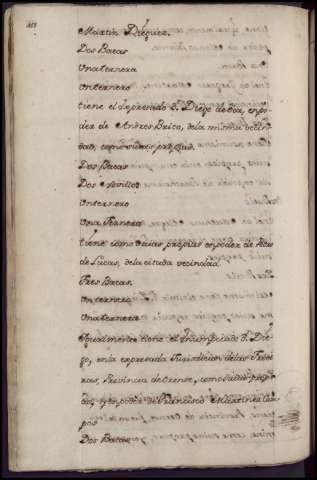 Martin Dieguez.
Dos Bacas
Una ternera
Un ternero
tiene el expresado Dn. Diego de Cora, en po-
der de Andres Brito, de la misma vecin-
dad, como suias propias.
Dos Bacas
Dos Novillos
Un ternero
Una Ternera
tiene como suias propias en poder de
de Lucas, de la citada vecindad
Tres Bacas.
Un ternero
Una ternera
Igualmente tiene el enunciado Dn. Die-
go, en la expresada Jurisdicion de las Frei-
xas, Provincia de Orense, como suias propi-
as, y en poder de Francisco Martinez Cam-
pos
Dos Bacas